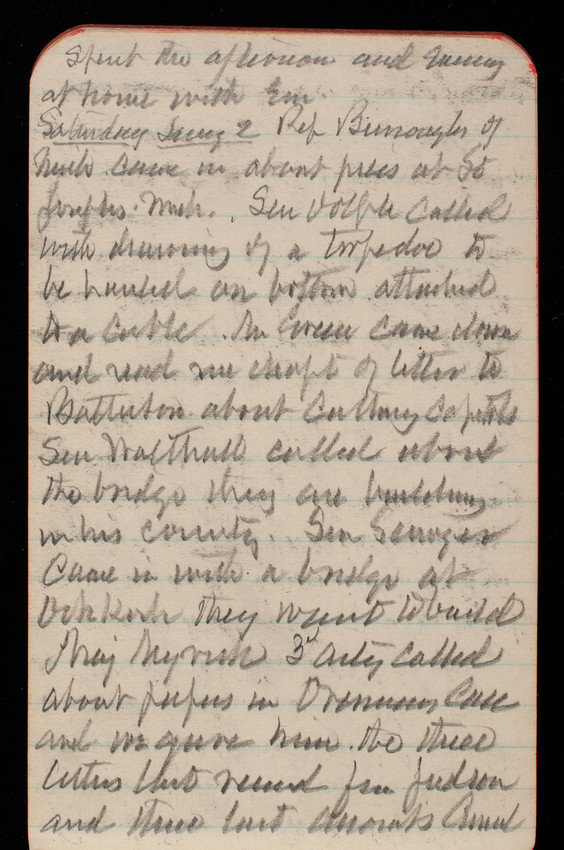 spent the afternoon and evening
at home with Em.
Saturday Jany 2 Rep Burroughs of
Mich came in about piers at St
Josephs Mich. Sen Dolph called
with drawing of a torpedo to
be hauled on bottom attached
to a cable. Mr Green came down
and read me draft of letter to
Batterson about cutting capitals
Sen Walthall called about
the bridge they are building
in his county. Sen Sawyer
came in with a bridge at
Oshkosh they want to build
Maj Myrick 3d Arty called
about papers in Drennan Case
and we gave him the three
letters that recvd from Judson
and three last accounts